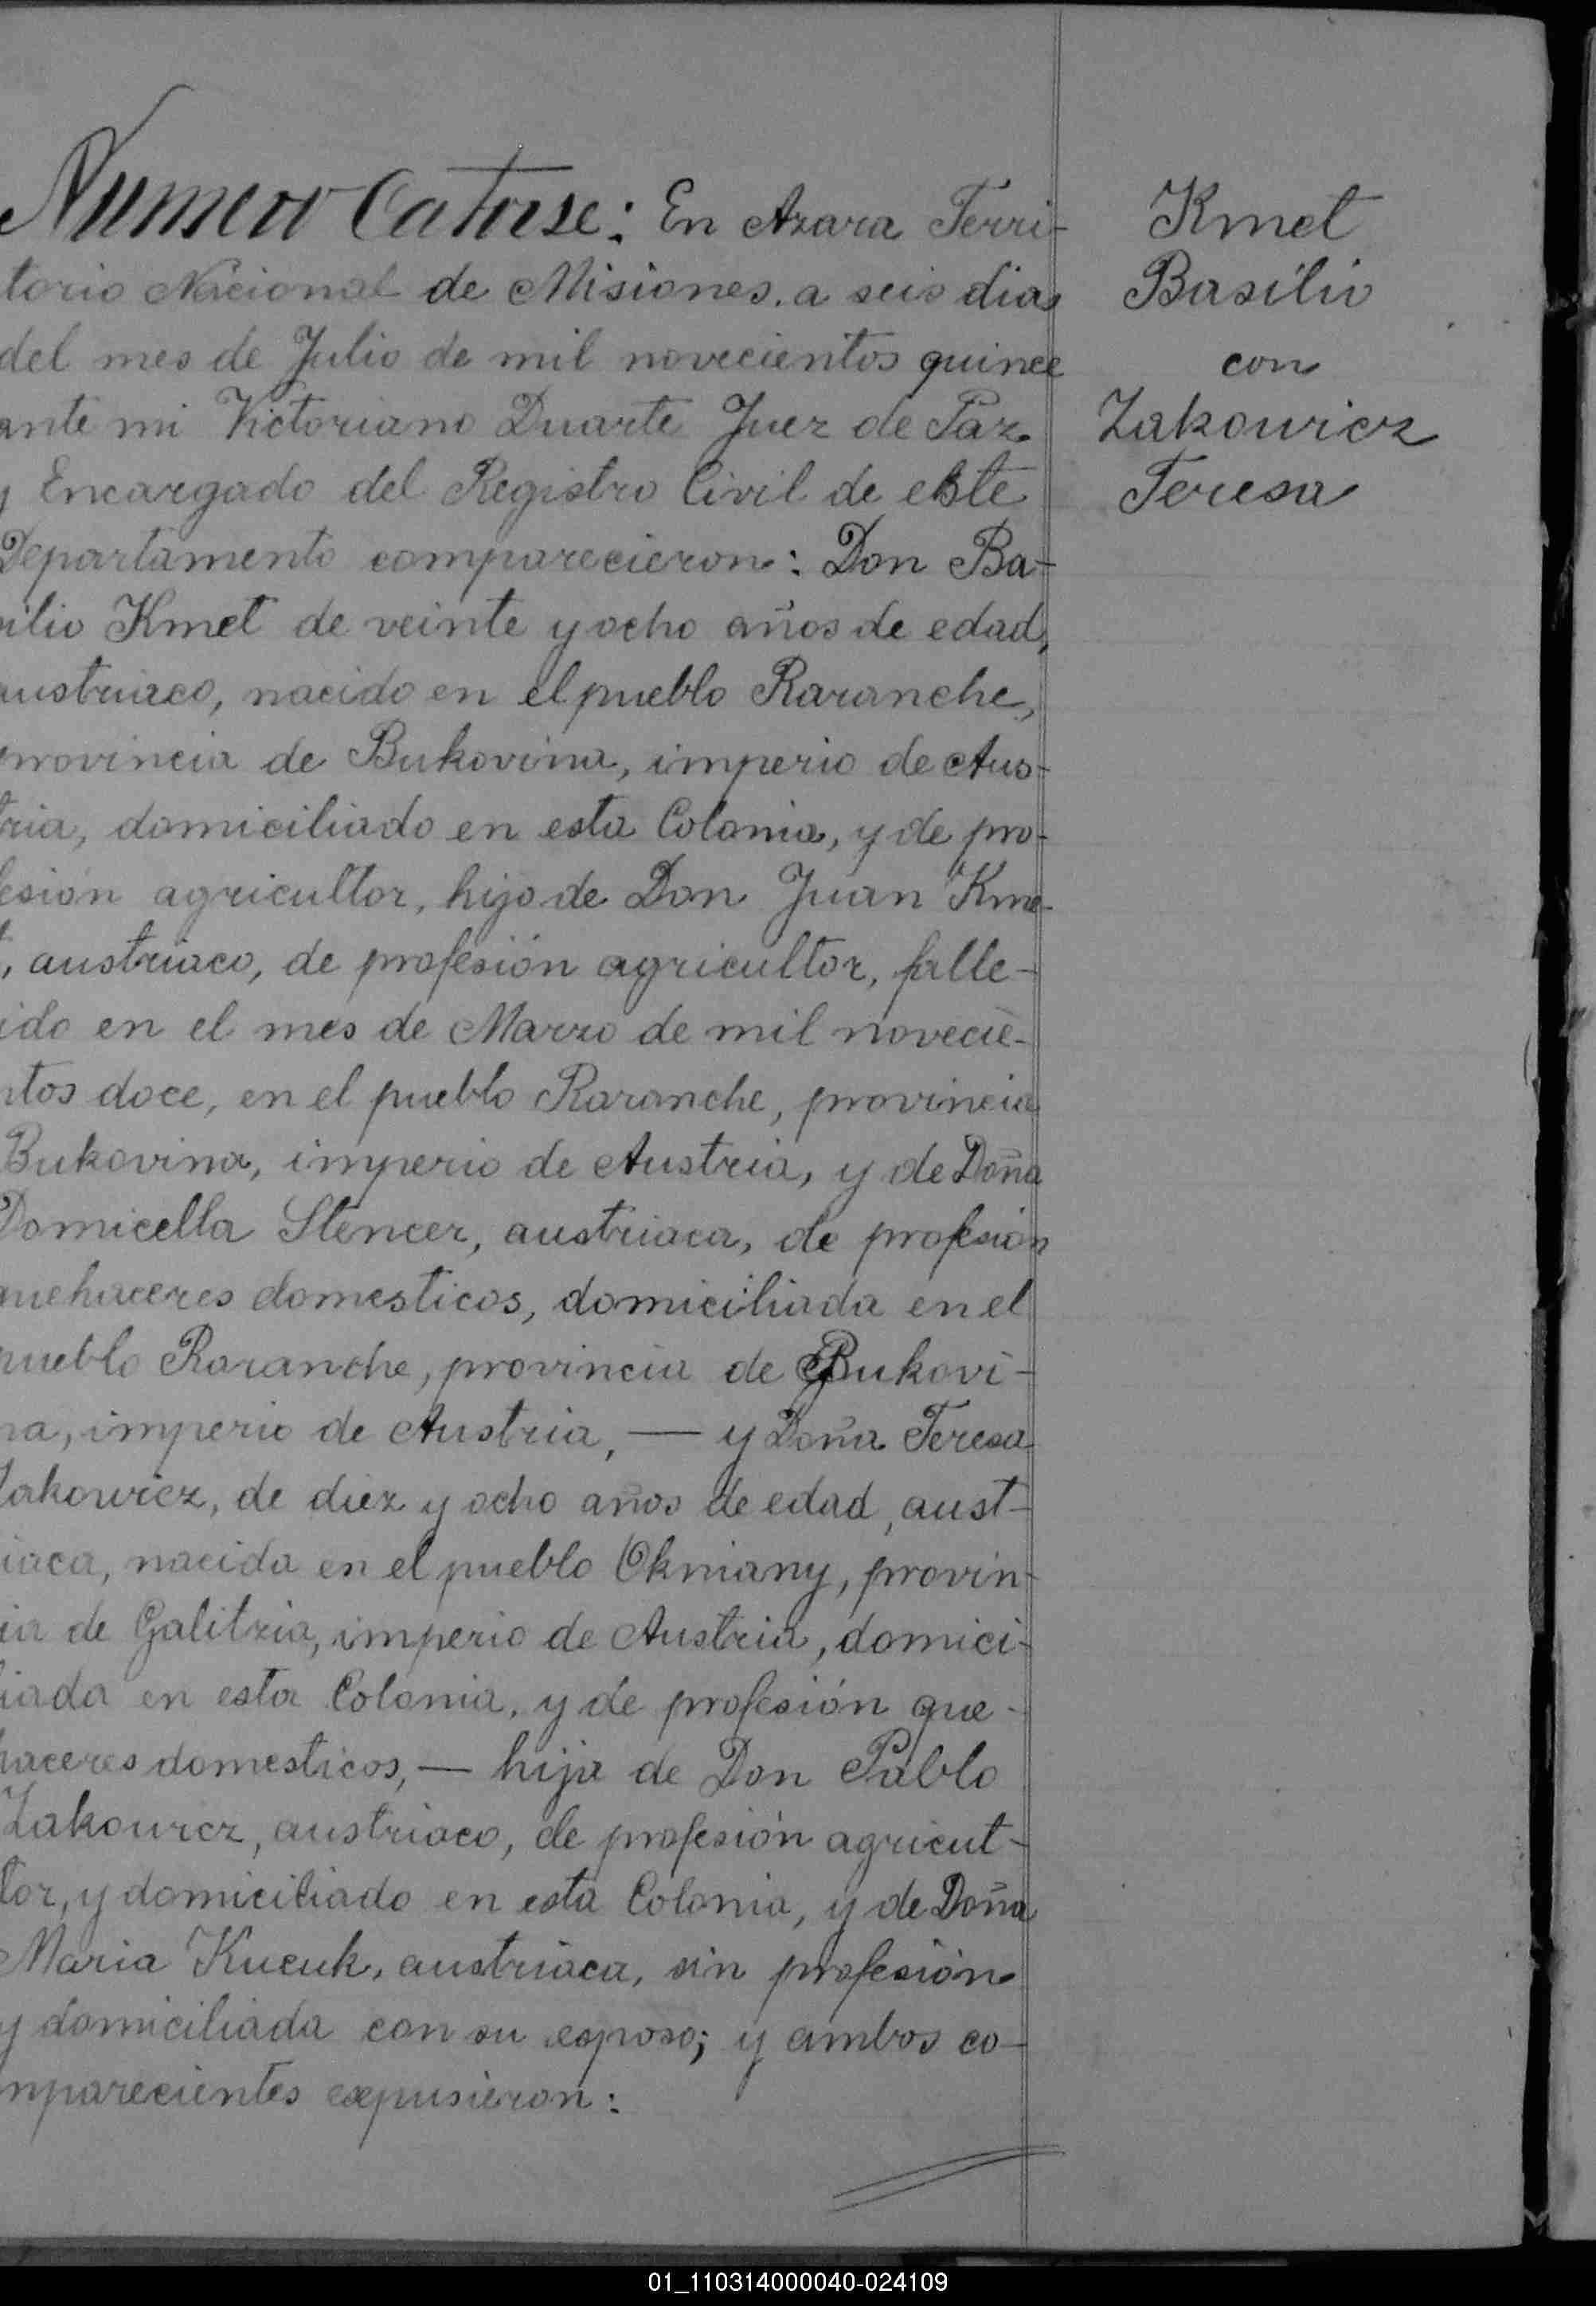 Numero Catorse: En Azara Terri-
torio Nacional de Misiones, a seis dias
del mes de Julio de mil novecientos quince
ante mi Victoriano Duarte Juez de Paz
y Encargado del Registro Civil de este
Departamento comparecieron: Don Ba-
silio Kmet de veinte y ocho años de edad,
austriaco, nacido en el pueblo Raranche,
provincia de Bukovina, imperio de Aus-
tria, domiciliado en esta Colonia, y de pro-
fesión agricultor, hijo de Don Juan Kme-
t, austriaco, de profesión agricultor, falle-
ido en el mes de Marzo de mil novecie-
ntos doce, en el pueblo Raranche, provincia
Bukovina, imperio de Austria, y de Doña
Domicella Stencer, austriaca, de profesión
quehaceres domesticos, domiciliada en el
pueblo Raranche, provincia de Bukovi-
na, imperio de Austria, — y Doña Teresa
Zakowicz, de diez y ocho años de edad, aust-
iaca, nacida en el pueblo Okniany, provin-
ia de Galitzia, imperio de Austria, domici-
liada en esta Colonia, y de profesión que-
haceres domesticos, — hija de Don Pablo
Zakowicz, austriaco, de profesión agricut-
tor, y domiciliado en esta Colonia, y de Doña
Maria Kucuk, austriaca, sin profesión
y domiciliada con su esposo; y ambos co-
mparecientes expusieron:
Kmet
Basilio
con
Zakowicz
Teresa
01_110314000040-024109